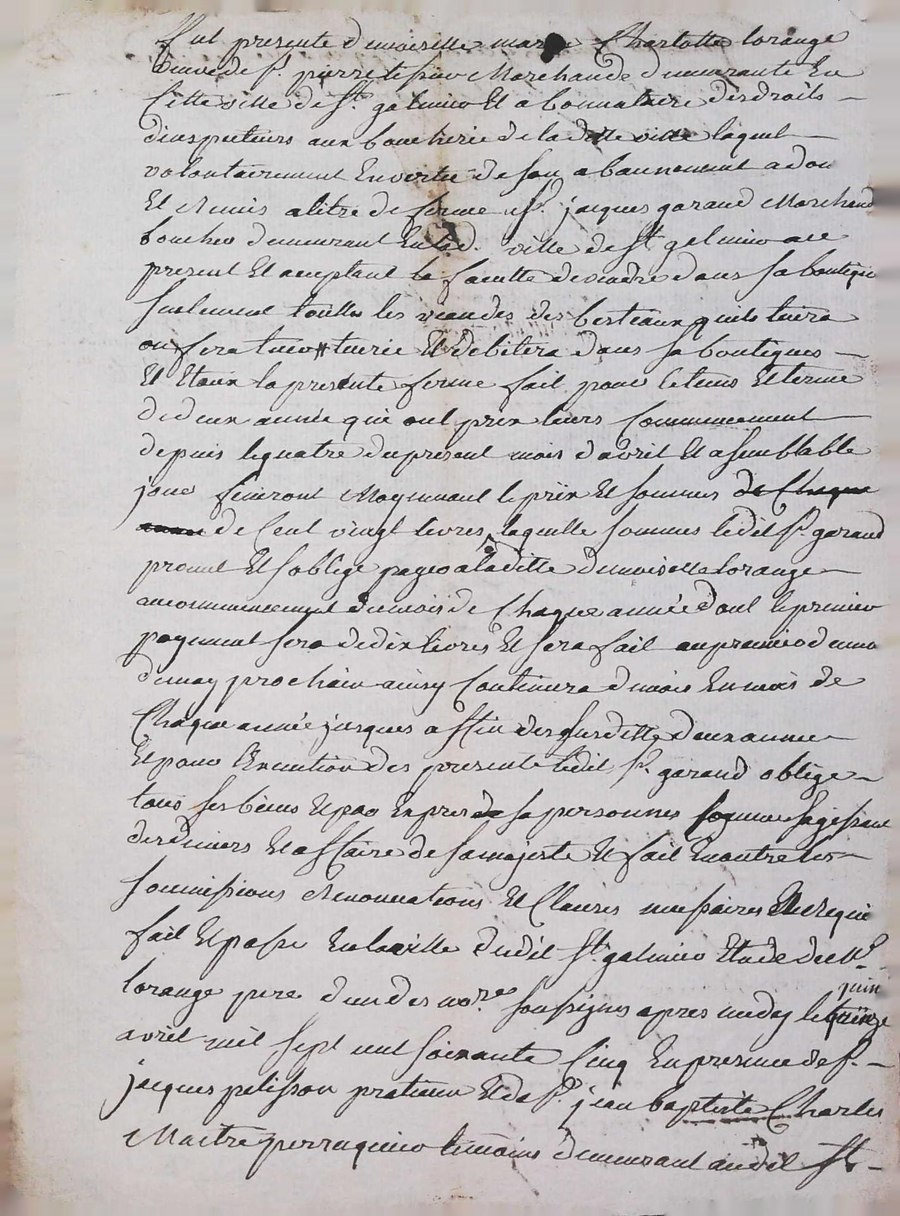 fut presente demoiselle marie Charlotte lorange
veuve de Sr. pierre Marchande demeurante En
Cette ville de St. galmier Et abonnataire des droits
dinspecteurs aux boucherie de la ditte ville laquel
volontairement En vertu de son abonnement a don
Et Remis a titre de ferme Sr. jacques garand Marchand
boucher demeurant En lad. ville de St galmier ace
present Et aceptant la faculte de vendre dans sa boutique
seulement touttes les viandes des bestiaux quils tuera
ou fera tuer Et debitera dans sa boutiques
Et Etaux la presente ferme fait pour le tems Et terme
de deux année qui ont prix leurs Commencement
depuis le quatre du present mois davril Et a semblable
jour finiront Moyennant le prix Et sommes de Chaque
année de Cent vingt livres laquelle sommes ledit Sr. garand
promet Et soblige payer a laditte demoiselle lorange
au commencement du mois de Chaque année dont le premier
payement sera de dix livres Et sera fait au premier du mo
de may prochain ainsy Continuera de mois En mois de
Chaque année jusques a fin des susditte deux année
Et pour lExecution des presente ledit Sr. garand oblige
tous ses biens Et par Expres sa personnes Comme sagissant
de deniers Et affaire de sa majeste Et fait En outre les
soumissions Renonciations Et Clauses necessaires Et Requi
fait Et passé En la ville dudit St. galmier Etude de Me
juin
lorange pere dun des nores soussignes apres midy le quinze
avril mil sept cent soixante Cinq En presence de Sr.
jacques pelisson praticien Et de Sr. jean baptiste Charles
Maitre perruquier temoins demeurant audit St